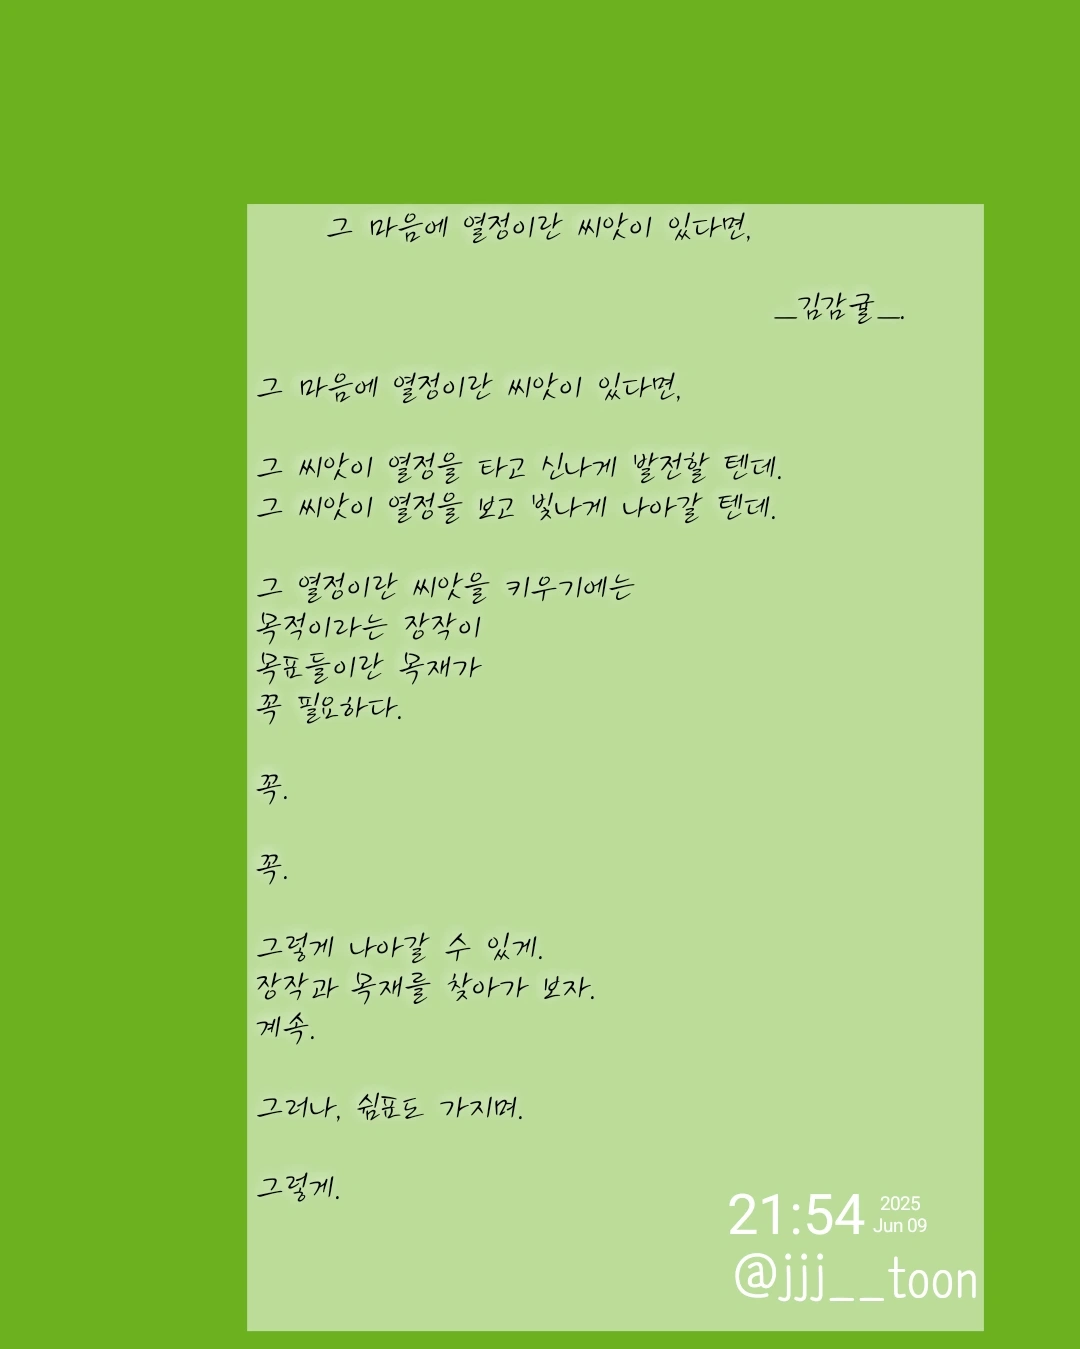 그 마음에 열정이란 씨앗이 있다면,
_김감귤_.
그 마음에 열정이란 씨앗이 있다면,
그 씨앗이 열정을 타고 신나게 발전할 텐데.
그 씨앗이 열정을 보고 빛나게 나아갈 텐데.
그 열정이란 씨앗을 키우기에는
목적이라는 장작이
목표들이란 목재가
꼭 필요하다.
꼭.
꼭.
그렇게 나아갈 수 있게.
장작과 목재를 찾아가 보자.
계속.
그러나, 쉼표도 가지며.
그렇게.
21:54 2025 Jun 09
@jjj__toon